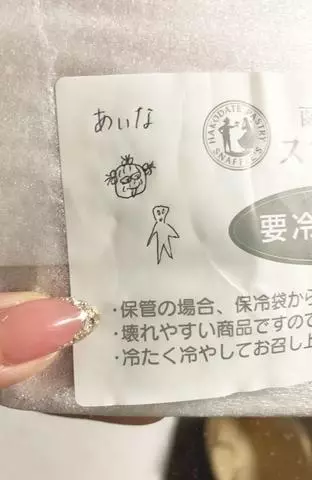 あいな
HAKODATE PASTRY
SNAFFLE'S
ス
要冷
・保管の場合、保冷袋から
・壊れやすい商品ですので
・冷たく冷やしてお召し上